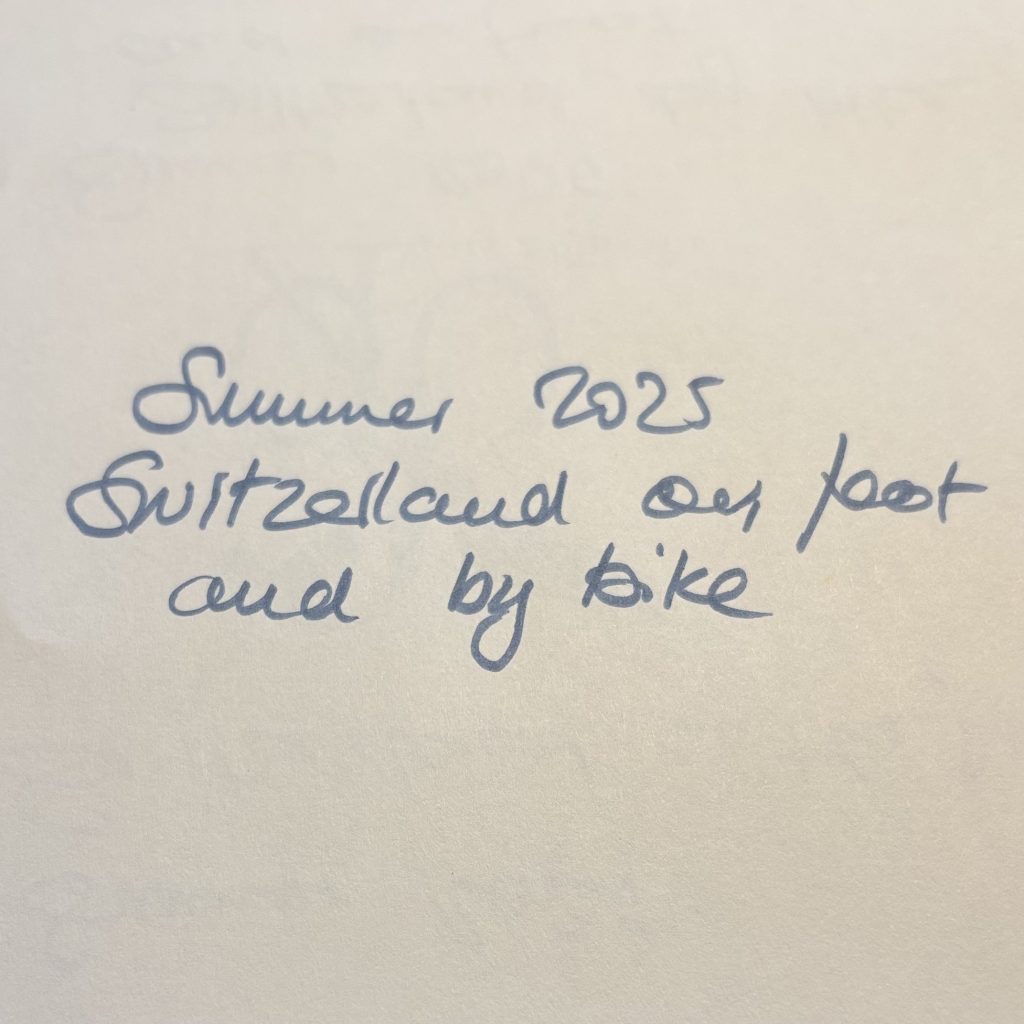 Summer 2025
Switzerland on foot
and by bike